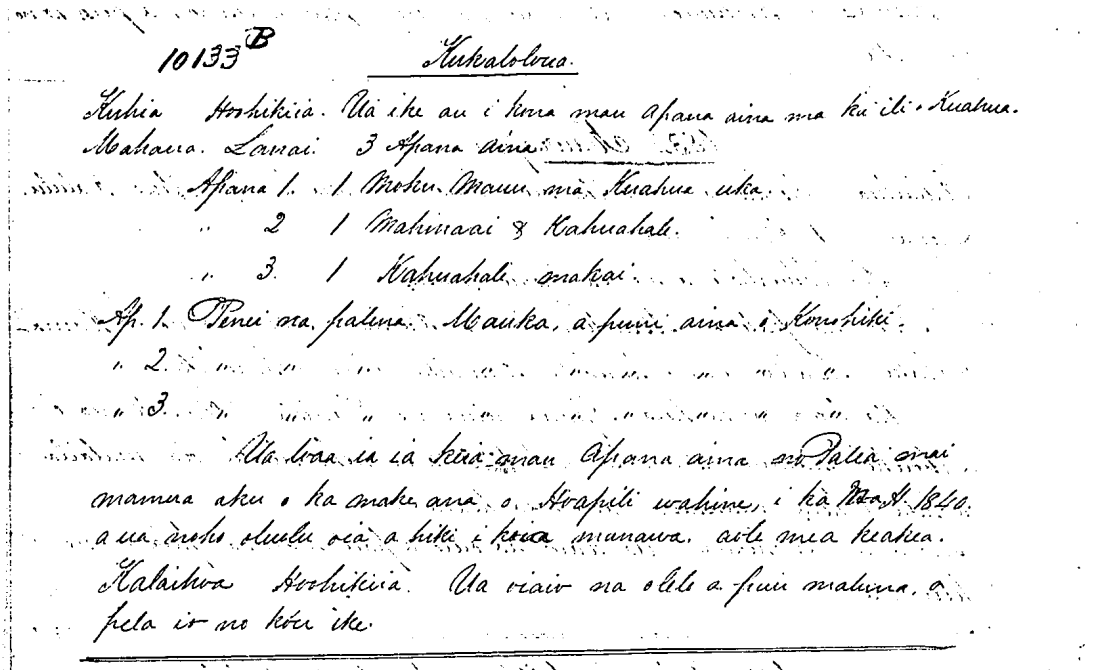 10133 B Kukaloloua.
Kuhia Hoohikiia. Ua ike au i kona mau Apana aina ma ka ili o Kuahua.
Mahana. Lanai. 3 Apana aina
Apana 1. 1 Moku Mauu ma Kuahua uka.
" 2 1 Mahinaai & Kahuahale.
" 3. 1 Kahuahale makai.
Ap. 1. Penei na palena. Mauka, a puni aina o Konohiki.
" 2. " " " " " "
" 3. " " " " " "
Ua loaa ia ia keia mau Apana aina no Palea mai
mamua aku o ka make ana o Hoapili wahine, i ka M.H. 1840.
a ua noho oluolu oia a hiki i keia manawa. aole mea keakea.
Kalaihoa Hoohikiia. Ua oiaio na olelo a pau maluna, o
pela io no kou ike.